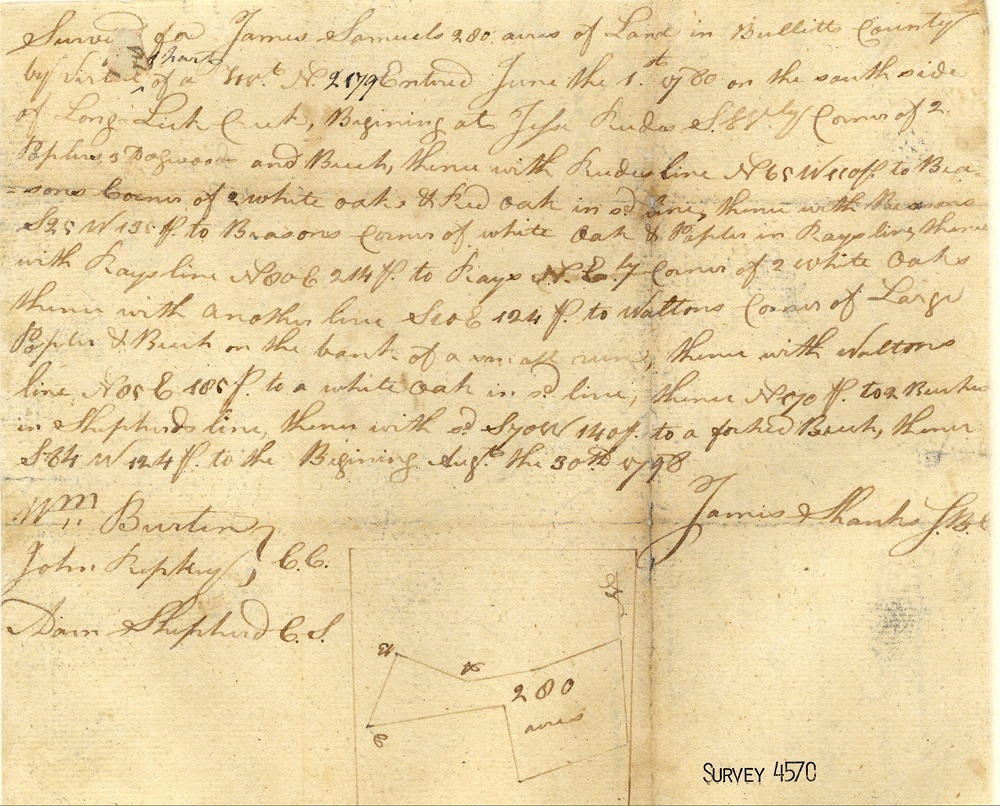 Survey for James Samuels 280 acres of Land in Bullitts County
part
by Virtue of a Wart. N. 2179 Entred June the 1.st 1780 on the south side
of Long Lick Creek, Begining at Jesse Rudes S. Ely Corner of 2
Poplers 3 Dogwoods and Beech, thence with Rudes line N65 W 110 p. to Bea-
-sons Corner of 2 white oaks & Red Oak in sd. line, thence with Beasons
S25 W 135 p. to Beasons Corner of white Oak & Popler in Rays line, thence
with Rays line N80 E 214 p. to Rays N. E.ly Corner of 2 White Oaks
thence with another line S10 E 124 p. to Waltons Corner of Large
Popler & Beech on the bank of a small run, thence with Waltons
line N85 E 185 p. to a white Oak in sd. line, thence N 170 p. to 2 Beeches
in Shepherds line, thence with sd. S70 W 140 p. to a forked Beech, thence
S84 W 124 p. to the Begining Augt. the 30th 1798
Wm. Burten
John C.C.
Adam Shepherd C. S.
James Shanks S.B.C
280
acres
SURVEY 4570